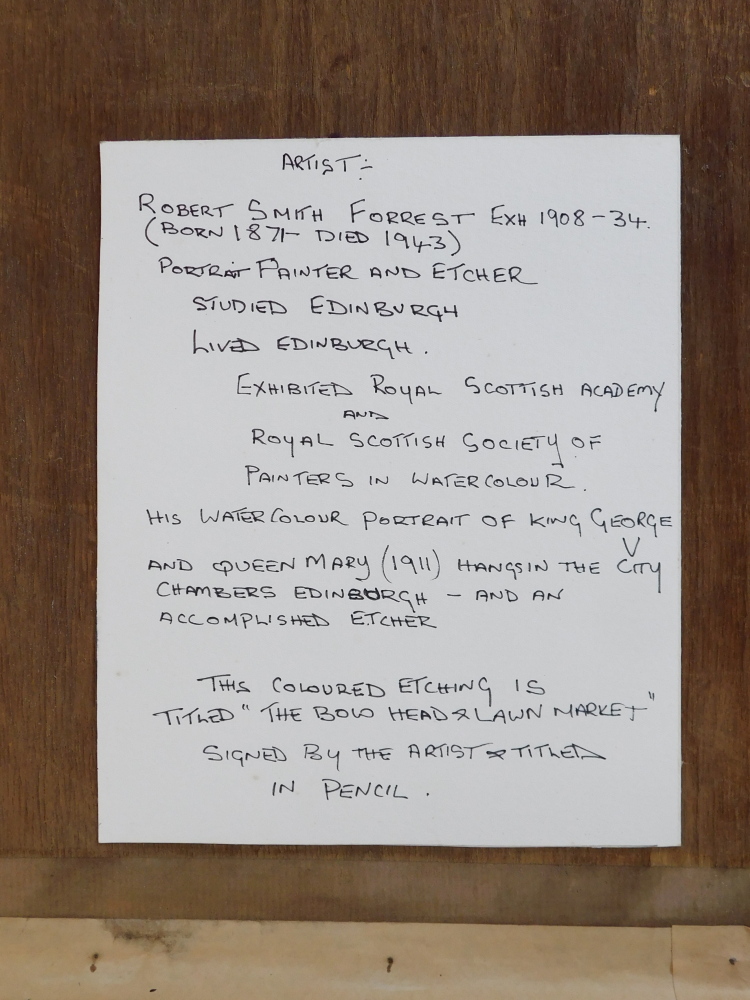 ARTIST:-
ROBERT SMITH FORREST EXH 1908-34.
(BORN 1871- DIED 1943)
PORTRAIT PAINTER AND ETCHER
STUDIED EDINBURGH
LIVED EDINBURGH.
EXHIBITED ROYAL SCOTTISH ACADEMY
AND
ROYAL SCOTTISH SOCIETY OF
PAINTERS IN WATERCOLOUR.
HIS WATERCOLOUR PORTRAIT OF KING GEORGE
V
AND QUEEN MARY (1911) HANGS IN THE CITY
CHAMBERS EDINBURGH - AND AN
ACCOMPLISHED ETCHER
THIS COLOURED ETCHING IS
TITLED "THE BOW HEAD & LAWN MARKET"
SIGNED BY THE ARTIST & TITLED
IN PENCIL.